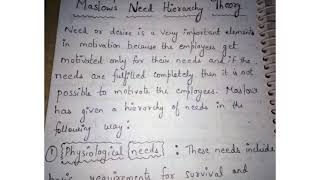 Maslow's Need Hierarchy Theory
Need or desire is a very important elements
in motivation because the employees get
motivated only for their needs and if the
needs are fulfilled completely then it is not
possible to motivate the employees. Maslow
has given a hierarchy of needs in the
following way:
① Physiological needs : These needs include
basic requirements for survival and